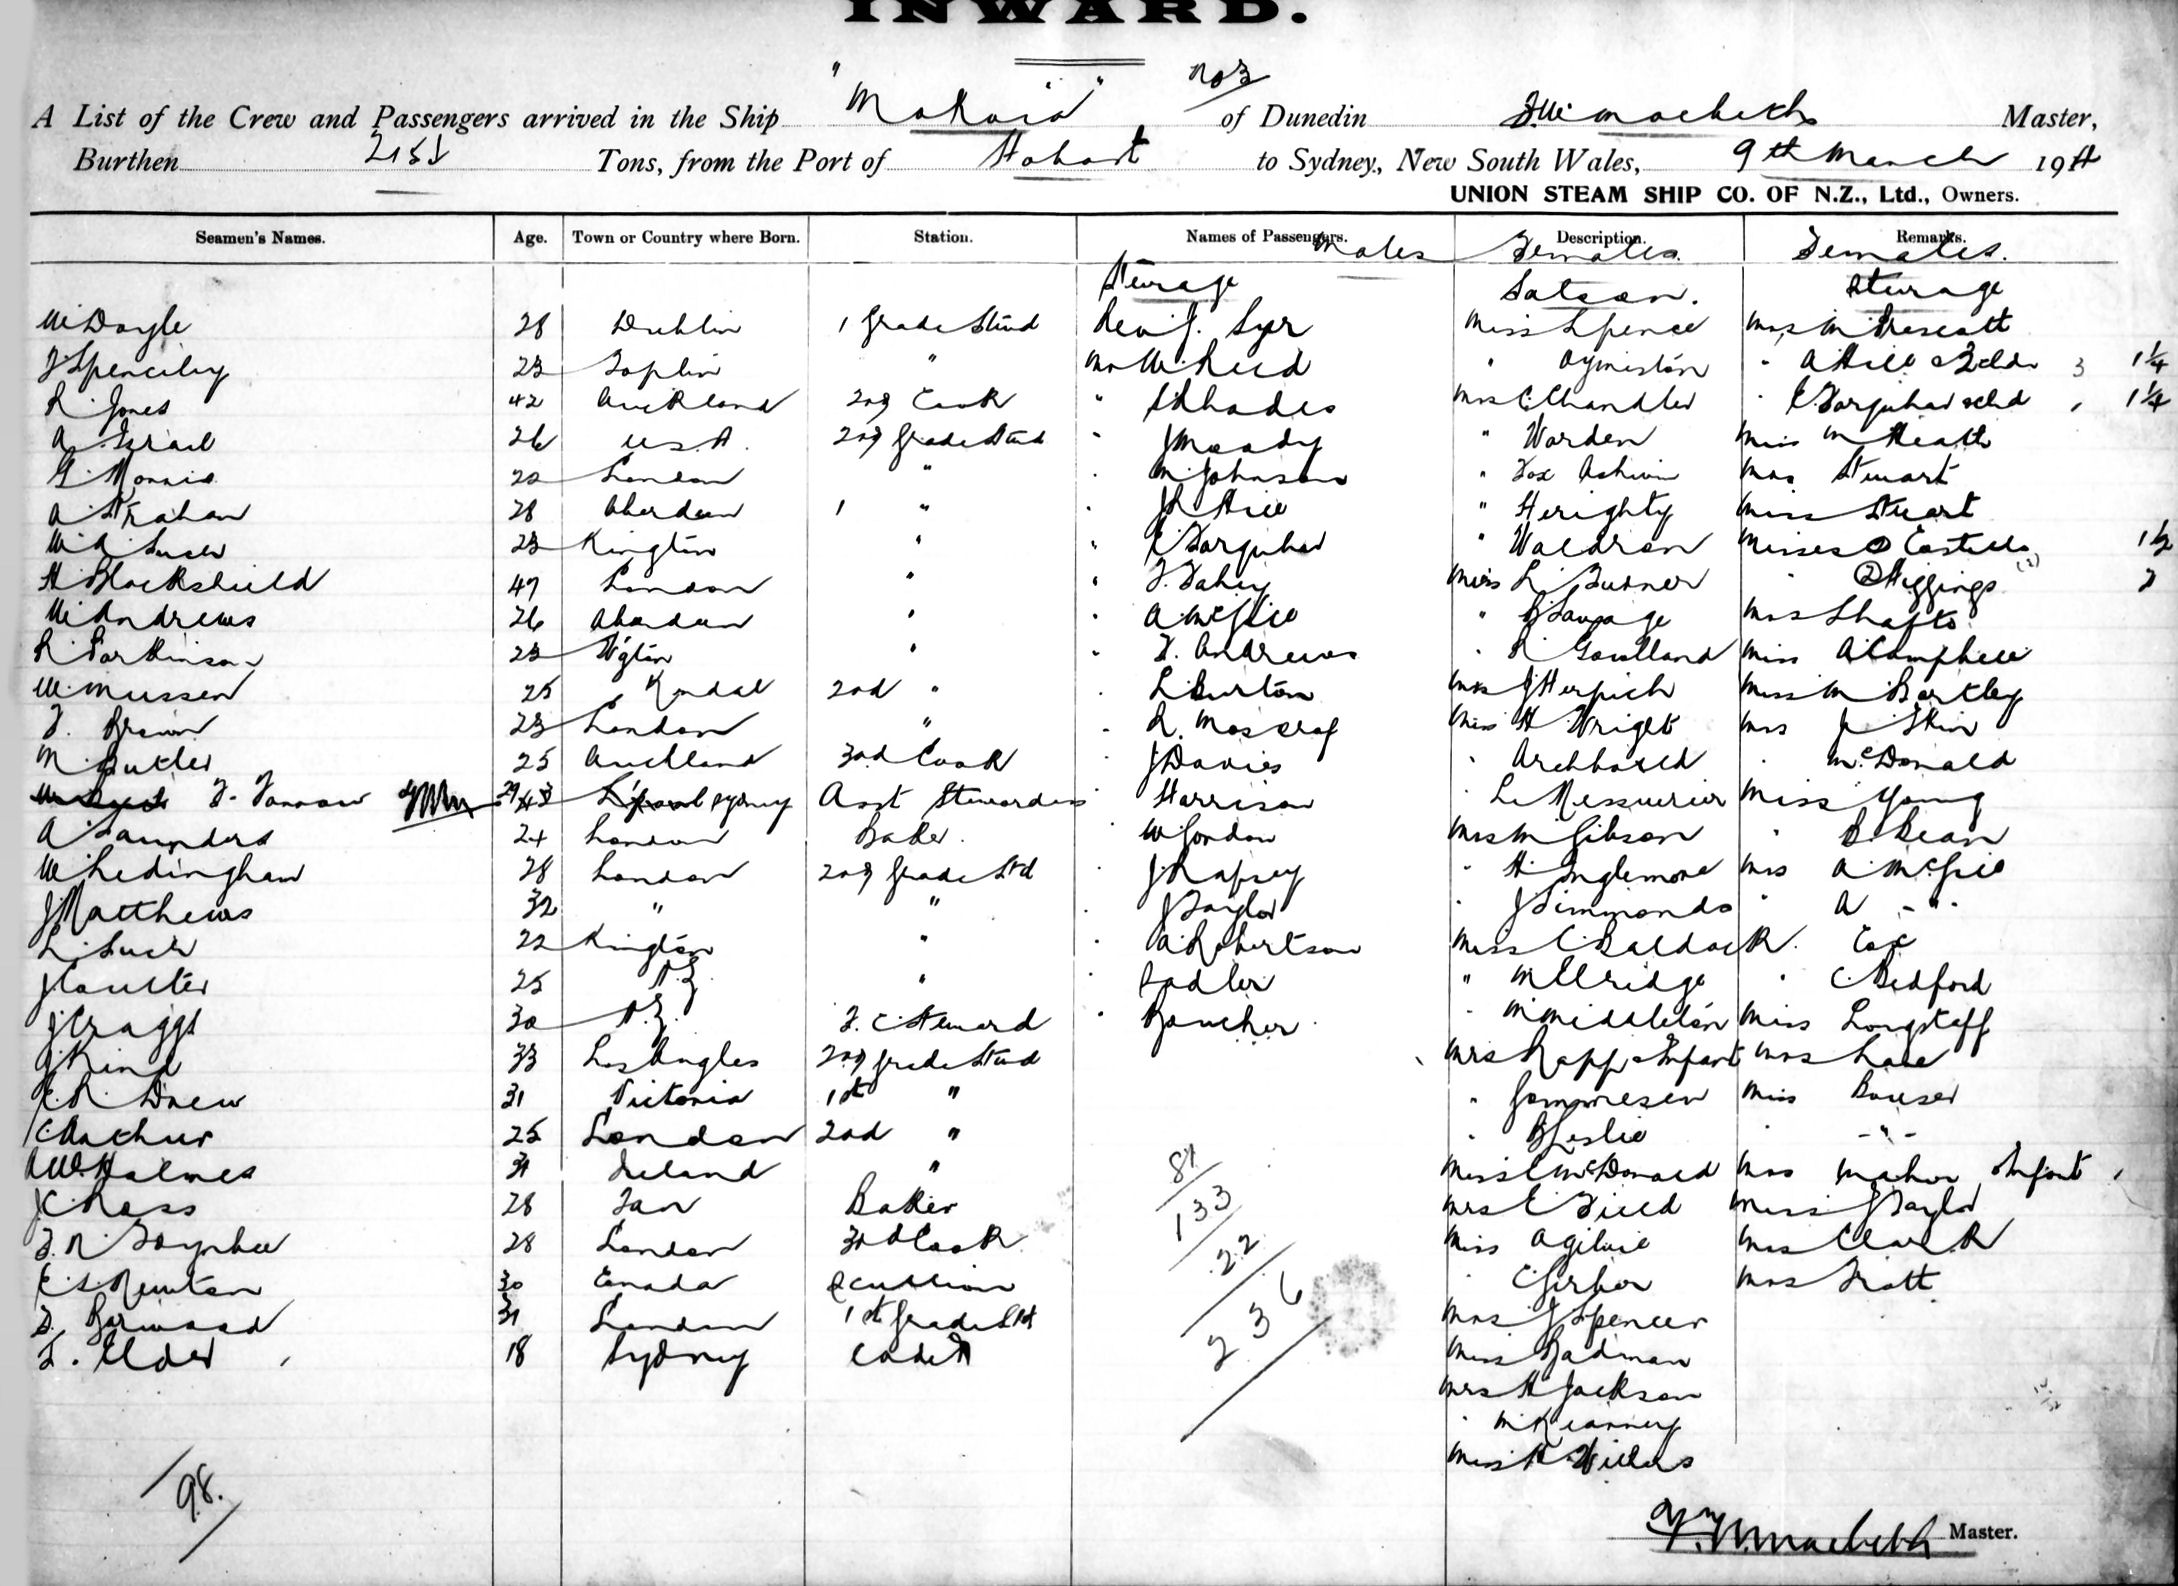 INWARD.
No 3
A List of the Crew and Passengers arrived in the Ship "Mokoia" of Dunedin Macbeth Master,
Burthen Tons, from the Port of Hobart to Sydney, New South Wales, 9th March 1911
UNION STEAM SHIP CO. OF N.Z., Ltd., Owners.
Seamen's Names. Age. Town or Country where Born. Station. Names of Passengers. Description. Remarks.
Males Females. Females.
Steerage Saloon. Steerage
W Doyle 28 Dublin 1 Grade Stwd Rev J. Syer Miss Spence Mrs M Prescott
23 Joplin " Mr W. Reid "
R. Jones 42 Auckland 2nd Cook " Rhodes Mrs C Chandler " E Farquhar & chd 1 1/4
A. Israel 26 U.S.A. 2nd Grade Stwd " J Moody " Warden Miss M Heath
G. Morris 22 London " " M. Johnson " Fox Mrs Stewart
A Strahan 28 Aberdeen 1 " " J R Hill " Herighty Miss Stuart
W A Such 23 Kington " " E Farquhar " Waldron Misses Costello 1 1/2
H Blackshield 47 London " " F. Fahey Miss L. Turner " 2 Higgings (2) 2
W Andrews 26 Aberdeen " " A McGie " Savage Mrs Shafto
R Parkinson 23 Wgton " " F. Andrews " R Goulland Miss A Campbell
W. Mussen 25 Kendal 2nd " " L Burton Mrs J Herpich Miss M Bartley
F. Brown 23 London " " R. Moscrop Miss H Wright Mrs J Skin
M. Butler 25 Auckland 3rd Cook " J Davies " Archbold " McDonald
F. Farrow 29 Sydney Asst Stewardess " Harrison " Le Messurier Miss Young
A Saunders 24 London Baker " W Gordon Mrs M Gibson " B Bean
W Ledingham 28 London 2nd Grade Std " J. Rapsey " H Inglemore Mrs A McGie
J Matthews 32 " " " J Taylor " J Simmonds " A "
L. Such 22 Kington " " A Robertson Miss C Baldock
J Coulter 25 N.Z. " " Sadler " M Elridge " C. Bedford
J Craggs 30 N.Z. F. C. Steward " Boucher " M Middleton Miss Longstaff
J Kind 33 Los Angles 2nd Grade Stwd Mrs Rapp & Infant Mrs Lane
E. R. Drew 31 Victoria 1st " " Gommesen Miss Bouser
C Arthur 25 London 2nd " " B Leslie " "
A W. Holmes 31 Ireland " Miss C McDonald Mrs Maher & Infant
J C Ross 28 Tas Baker Mrs E Field Miss J Taylor
F. R. Toynbee 28 London 3rd Cook Miss Ogilvie Mrs Clark
E S Newton 30 Canada Scullion " C Gerber Mrs Trott
F. Garwood 31 London 1st Grade Std Mrs J Spencer
S. Elder 18 Sydney Cadet Miss Badman
Mrs H Jackson
" M. Kearney
Miss H Willis
81
133
22
236
98.
Macbeth Master.